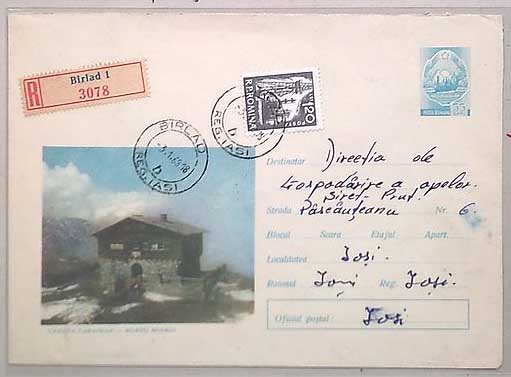 R
Birlad 1
3078
R.P.ROMINA
POSTA
1,20
BIRLAD
REG. IAȘI
D
BIRLAD
REG. IAȘI
D
55
Destinatar Direcția de
Gospodărire a apelor.
Siret - Prut.
Strada Păscăuțeanu Nr. 6.
Blocul Scara Etajul Apart.
Localitatea Iași.
Raionul Iași Reg. Iași.
Oficiul poștal: Iași
CABANA CARAIMAN — MUNȚII BUCEGI